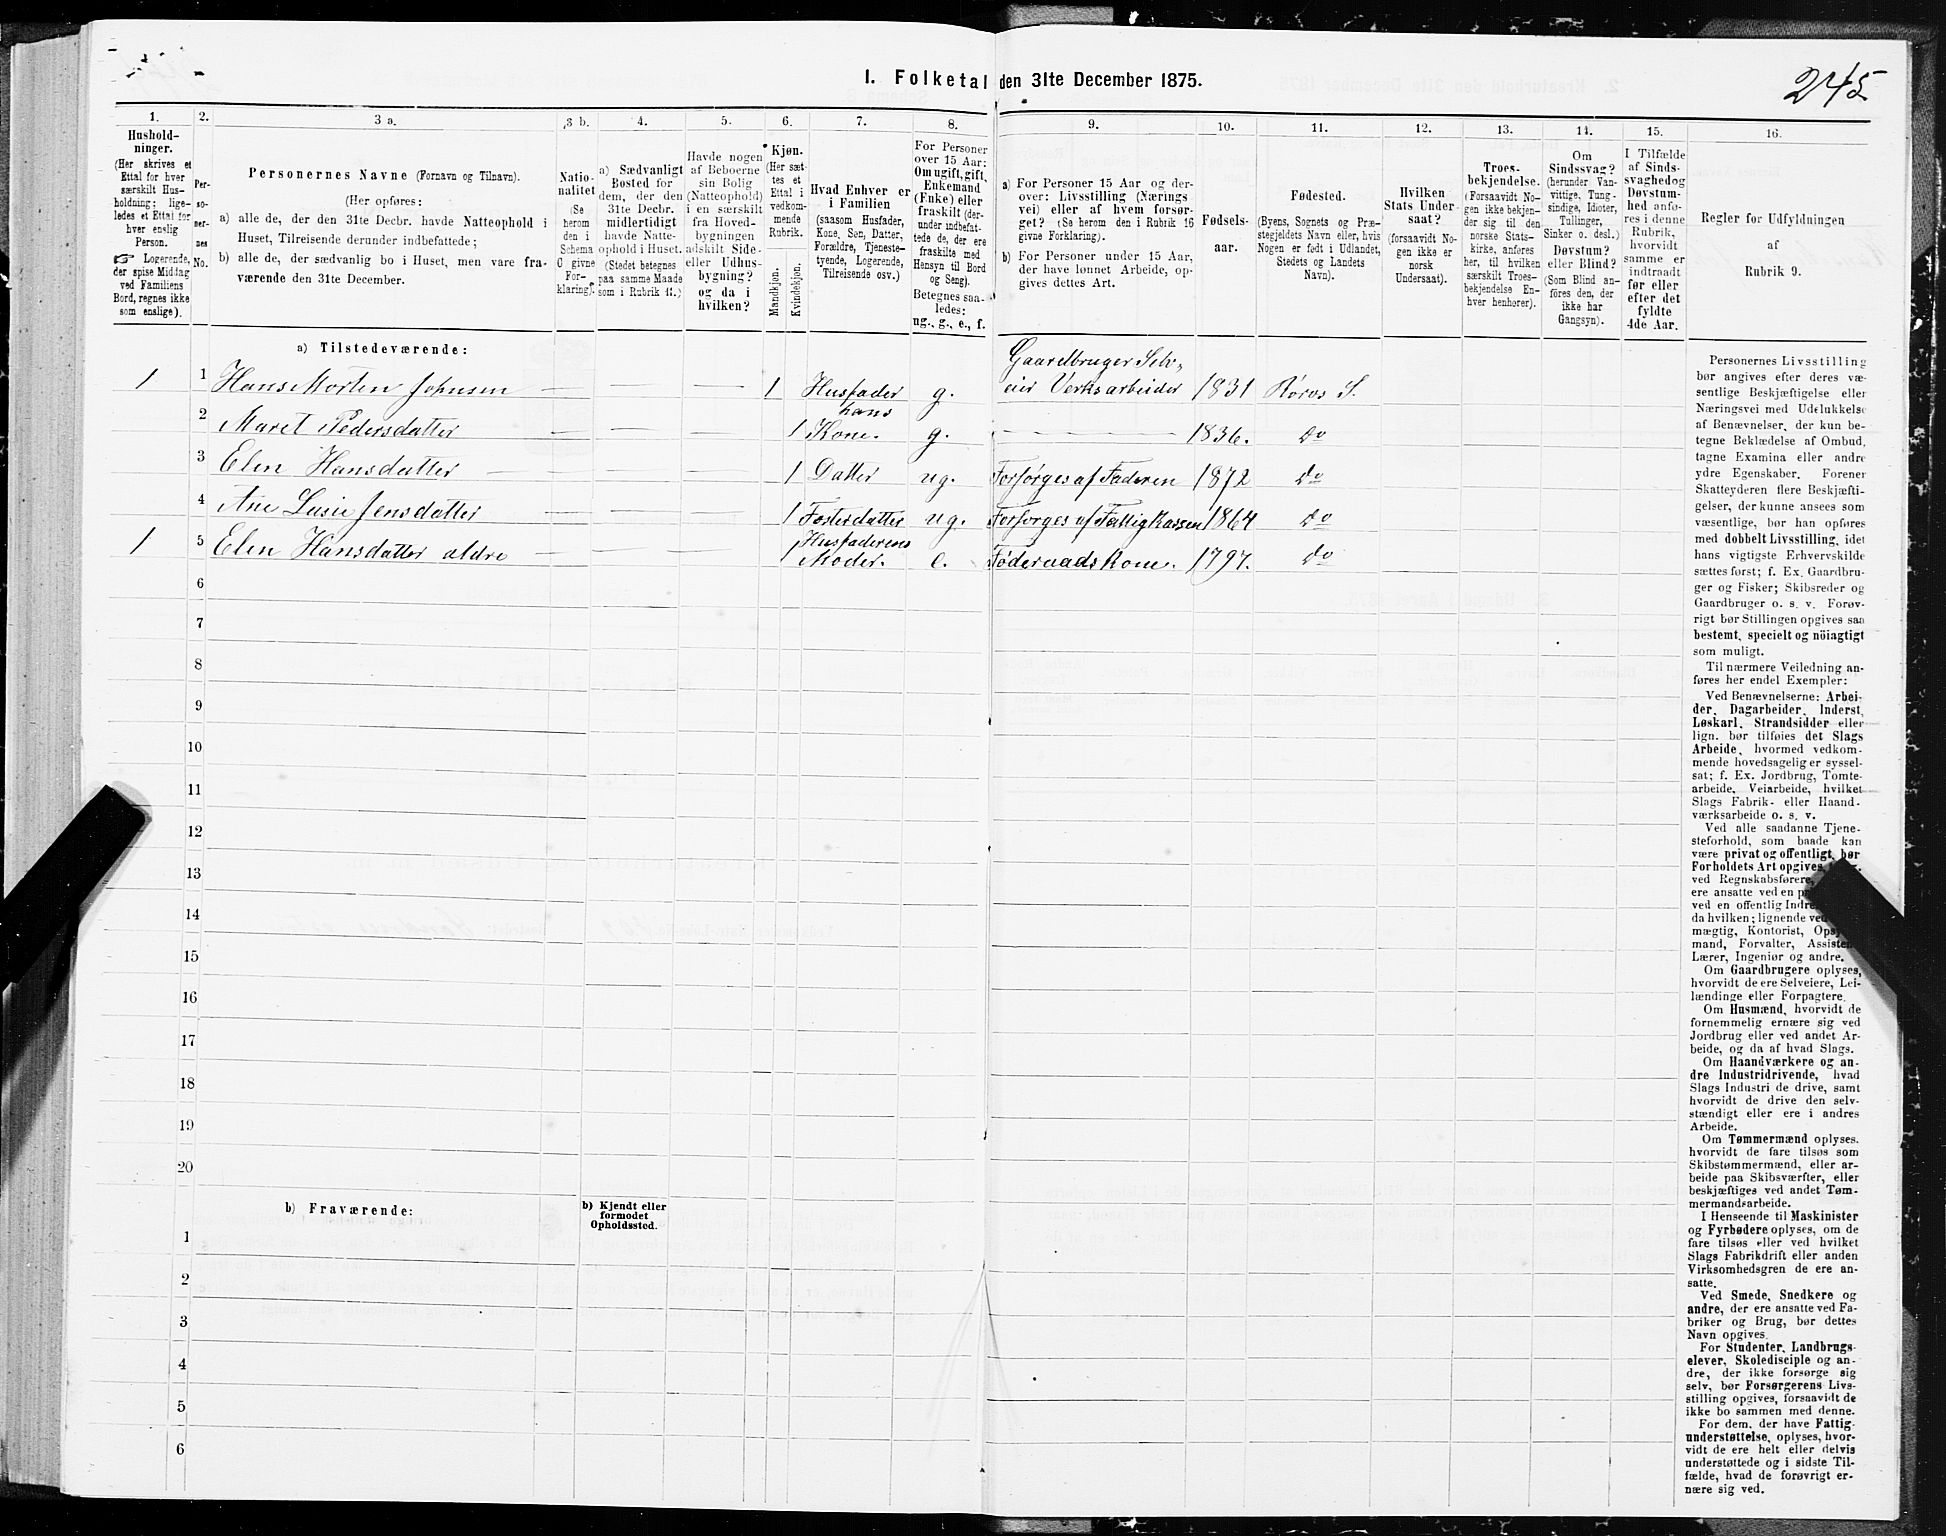 I. Folketal den 31te December 1875.
245
1.
Hushold-
ninger.
(Her skrives et
Ettal for hver
særskilt Hus-
holdning; lige-
ledes et Ettal for
hver enslig
Person.
☞ Logerende,
der spise Middag
ved Familiens
Bord, regnes ikke
som enslige).
2.
Per-
so-
ner-
nes
No.
3 a.
Personernes Navne (Fornavn og Tilnavn).
(Her opføres:
a) alle de, der den 31te Decbr. havde Natteophold i
Huset, Tilreisende derunder indbefattede;
b) alle de, der sædvanlig bo i Huset, men vare fra-
værende den 31te December.
3 b.
Natio-
nalitet
(Se
herom
den i
Schema
G givne
For-
klaring).
4.
a) Sædvanligt
Bosted for
dem, der den
31te Decbr.
midlertidigt
havde Natte-
ophold i Huset.
(Stedet betegnes
paa samme Maade
som i Rubrik 11.)
5.
Havde nogen
af Beboerne
sin Bolig
(Natteophold)
i en særskilt
fra Hoved-
bygningen
adskilt Side-
eller Udhus-
bygning?
og da i
hvilken?
6.
Kjøn.
(Her sæt-
tes et
Ettal i
vedkom-
mende
Rubrik.
Mandkjøn.
Kvindekjøn.
7.
Hvad Enhver er
i Familien
(saasom Husfader,
Kone, Søn, Datter,
Forældre, Tjeneste-
tyende, Logerende,
Tilreisende osv.)
8.
For Personer
over 15 Aar:
Om ugift, gift,
Enkemand
(Enke) eller
fraskilt (der-
under indbefat-
tede de, der ere
fraskilte med
Hensyn til Bord
og Seng).
Betegnes saa-
ledes:
ug., g., e., f.
9.
a) For Personer 15 Aar og der-
over: Livsstilling (Nærings-
vei) eller af hvem forsør-
get? (Se herom den i Rubrik 16
givne Forklaring).
b) For Personer under 15 Aar,
der have lønnet Arbeide, op-
gives dettes Art.
10.
Fødsels-
aar.
11.
Fødested.
(Byens, Sognets og Præ-
stegjeldets Navn eller, hvis
Nogen er født i Udlandet,
Stedets og Landets
Navn).
12.
Hvilken
Stats Under-
saat?
(forsaavidt No-
gen ikke er
norsk
Undersaat).
13.
Troes-
bekjendelse.
(Forsaavidt No-
gen ikke bekjen-
der sig til den
norske Stats-
kirke, anføres
her, til hvilken
særskilt Troes-
bekjendelse En-
hver henhører).
14.
Om
Sindssvag?
(herunder Van-
vittige, Tung-
sindige, Idioter,
Tullinger,
Sinker o. desl.)
Døvstum?
eller Blind?
(Som Blind an-
føres den, der
ikke har
Gangsyn).
15.
I Tilfælde
af Sinds-
svaghed og
Døvstum-
hed anfø-
res i denne
Rubrik,
hvorvidt
samme er
indtraadt
før eller
efter det
fyldte
4de Aar.
16.
Regler for Udfyldningen
af
Rubrik 9.
a) Tilstedeværende:
1 1 Hans Morten Johnsen — — — 1 Husfader g. Gaardbruger Selv-
eier Verksarbeider 1831 Røros S.
2 Maret Pedersdatter — — — 1 hans
Kone. g. — 1836. Do
3 Elen Hansdatter — — — 1 Datter ug. Forsørges af Faderen 1872 Do
4 Ane Lusie Jensdatter — — — 1 Fosterdatter ug. Forsørges af Fattigkassen 1864 Do
1 5 Elen Hansdatter ældre — — — 1 Husfaderens
Moder. e. Føderaadskone. 1797. Do
6
7
8
9
10
11
12
13
14
15
16
17
18
19
20
b) Fraværende:
b) Kjendt eller
formodet
Opholdssted.
1
2
3
4
5
6
Personernes Livsstilling
bør angives efter deres væ-
sentlige Beskjæftigelse eller
Næringsvei med Udelukkelse
af Benævnelser, der kun be-
tegne Beklædelse af Ombud,
tagne Examina eller andre
ydre Egenskaber. Forener
Skatteyderen flere Beskjæfti-
gelser, der kunne ansees som
væsentlige, bør han opføres
med dobbelt Livsstilling, idet
hans vigtigste Erhvervskilde
sættes først; f. Ex. Gaardbru-
ger og Fisker; Skibsreder og
Gaardbruger o. s. v. Forøv-
rigt bør Stillingen opgives saa
bestemt, specielt og nöiagtigt
som muligt.
Til nærmere Veiledning an-
føres her endel Exempler:
Ved Benævnelserne: Arbei-
der, Dagarbeider, Inderst,
Løskarl, Strandsidder eller
lign. bør tilføies det Slags
Arbeide, hvormed vedkom-
mende hovedsagelig er syssel-
sat; f. Ex. Jordbrug, Tomte-
arbeide, Veiarbeide, hvilket
Slags Fabrik- eller Haand-
værksarbeide o. s. v.
Ved alle saadanne Tjene-
steforhold, som baade kan
være privat og offentligt, bør
Forholdets Art opgives,
ved Regnskabsførere,
ere ansatte ved en
ved en offentlig
da hvilken; lignende ved
mægtig, Kontorist,
mand, Forvalter,
Lærer, Ingeniør og andre.
Om Gaardbrugere oplyses,
hvorvidt de ere Selveiere, Lei-
lændinge eller Forpagtere.
Om Husmænd, hvorvidt de
fornemmelig ernære sig ved
Jordbrug eller ved andet Ar-
beide, og da af hvad Slags.
Om Haandværkere og an-
dre Industridrivende, hvad
Slags Industri de drive, samt
hvorvidt de drive den selv-
stændigt eller ere i andres
Arbeide.
Om Tømmermænd oplyses,
hvorvidt de fare tilsøs som
Skibstømmermænd, eller ar-
beide paa Skibsværfter, eller
beskjæftiges ved andet Tøm-
mermandsarbeide.
I Henseende til Maskinister
og Fyrbødere oplyses, om de
fare tilsøs eller ved hvilket
Slags Fabrikdrift eller anden
Virksomhedsgren de ere an-
satte.
Ved Smede, Snedkere og
andre, der ere ansatte ved Fa-
briker og Brug, bør dettes
Navn opgives.
For Studenter, Landbrugs-
elever, Skoledisciple og an-
dre, der ikke forsørge sig
selv, bør Forsørgerens Livs-
stilling opgives, forsaavidt de
ikke bo sammen med denne.
For dem, der have Fattig-
understøttelse, oplyses, hvor-
vidt de ere helt eller delvis
understøttede og i sidste Til-
fælde, hvad de forøvrigt er-
nære sig ved.